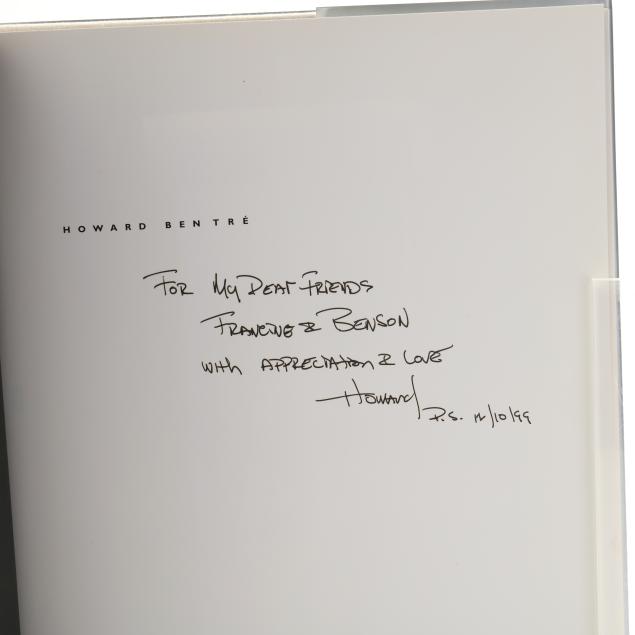 HOWARD BEN TRÉ
FOR My DEAR FRIENDS
FRANCINE & BENSON
with APPRECIATION & LOVE
HOWARD
P.S. 12/10/99